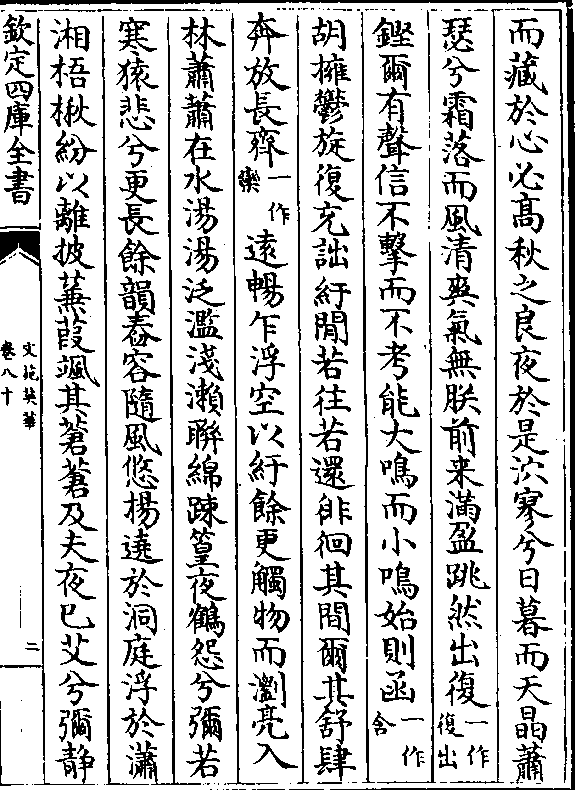 而藏於心必髙秋之良夜於是泬寥兮日暮而天晶蕭
瑟兮霜落而風清爽氣無朕前来滿盈跳然出復一作復出
鏗爾有聲信不擊而不考能大鳴而小鳴始則函一作含
胡擁鬱旋復充詘紆閒若往若還徘徊其間爾其舒肆
奔放長齊一作欒逺暢乍浮空以紆餘更觸物而瀏亮入
林蕭蕭在水湯湯泛濫淺瀨聨綿踈篁夜鶴怨兮彌若
寒猿悲兮更長餘韻舂容隨風悠揚遶於洞庭浮於瀟
湘梧楸紛以離披蒹葭颯其蒼蒼及夫夜已艾兮彌静
欽定四庫全書
文苑英華
卷八十
二